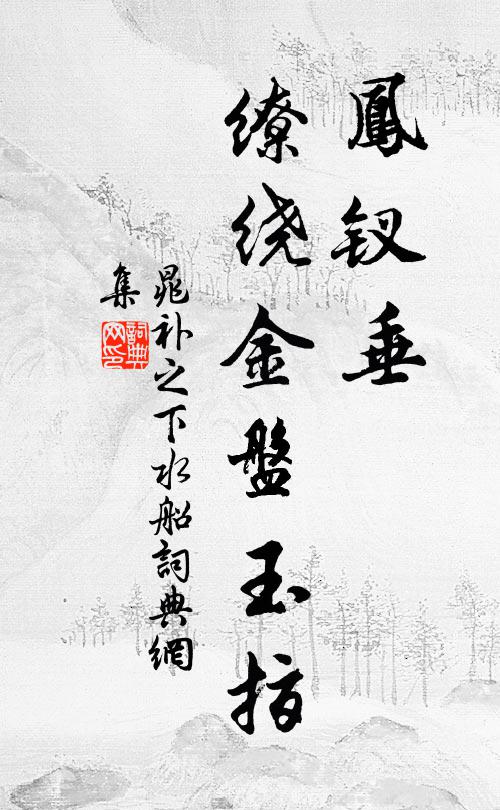 鳳钗垂
缭绕金盤玉指
晁补之下水船詞典網
集
詞典
网印